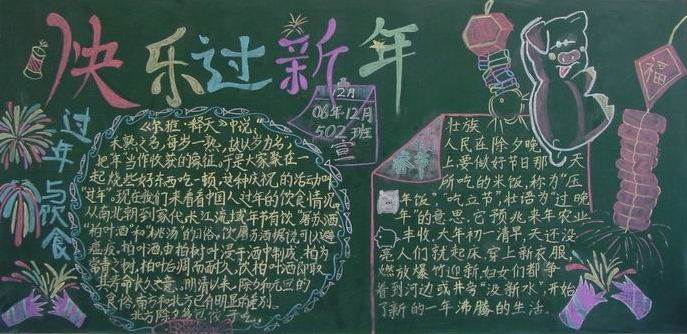 快乐过新年
12月
06年12月
502班
宣
福
过年与饮食
《尔雅·释天》中说,
禾熟之名,每岁一熟,故以岁为名,
把年当作收获的象征。于是大家聚在一
起烧些好东西吃一顿,这种庆祝的活动叫
"过年"。现在我们来看看中国人过年的饮食情况,
从南北朝到宋代,长江流域年节有饮"屠苏酒"
"柏叶酒"和"桃汤"的习俗,饮屠苏酒据说可以避
瘟疫,柏叶酒由柏树叶浸于酒中制成,柏为
常青之树,柏叶后凋而耐久,饮柏叶酒即取
其寿命长久之意。明清以来,除夕和元旦的
食俗,南方和北方已有明显的差别。
北方除夕多包饺子吃
春节
壮族
人民在除夕晚
上要做好节日那一天
所吃的米饭,称为"压
年饭","吃立节"壮语为"过晚
年"的意思,它预兆来年农业
丰收,大年初一清早天还没
亮人们就起床,穿上新衣服,
燃放爆竹迎新,妇女们都争
着到河边或井旁"汲新水",开始
了新的一年沸腾的生活。